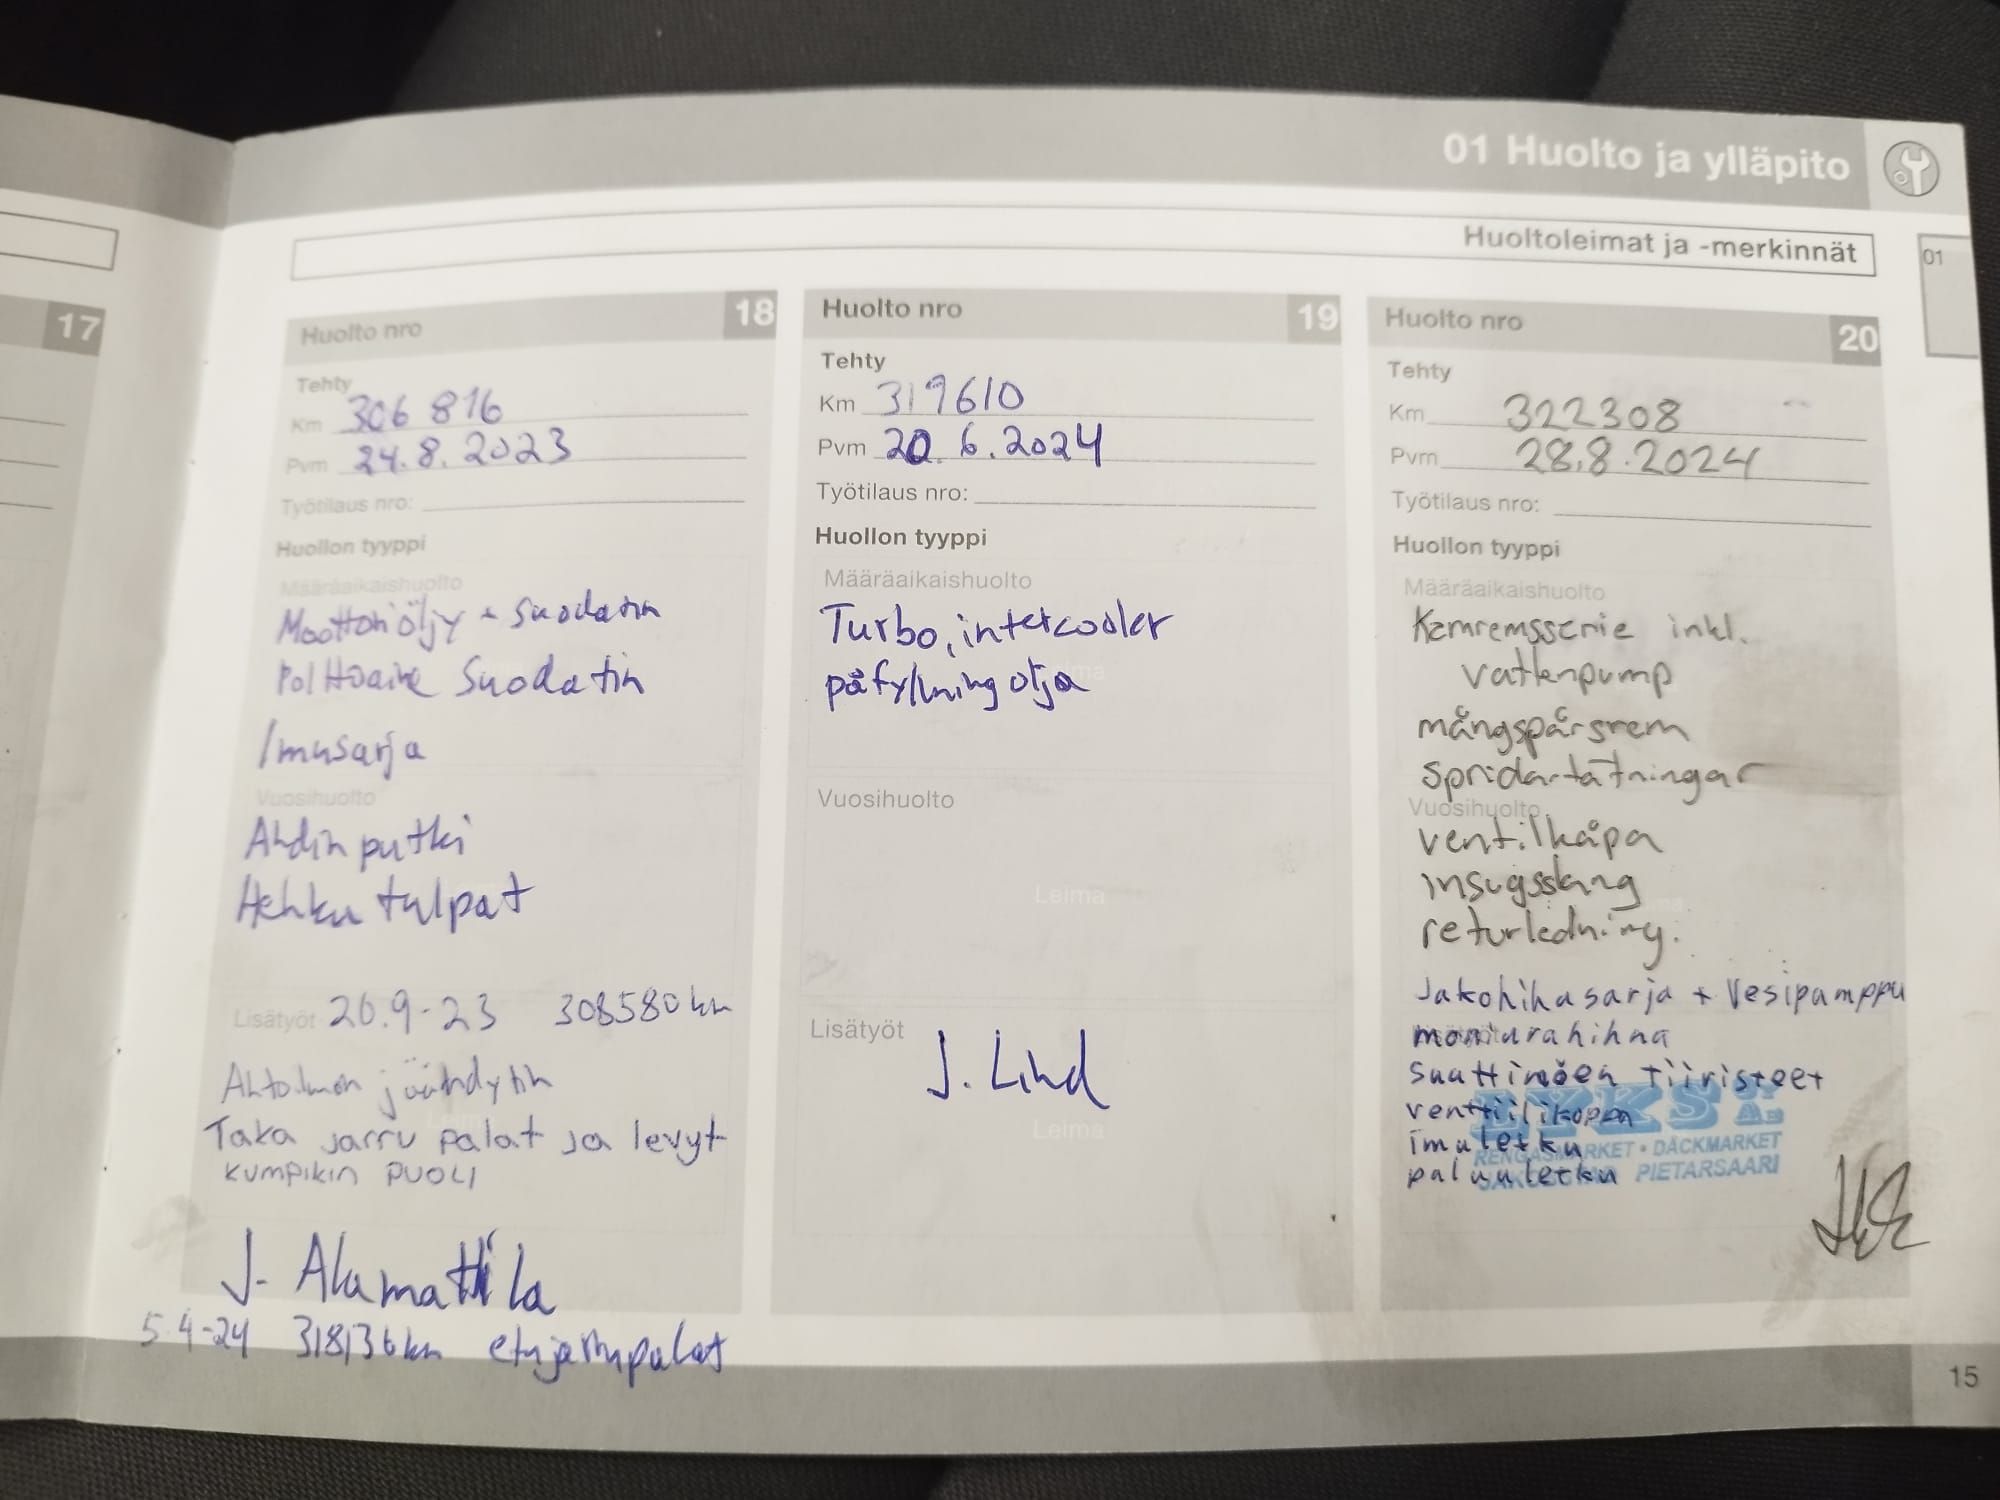 01 Huolto ja ylläpito
Huoltoleimat ja -merkinnät
01
17
Huolto nro 18
Tehty
Km 306 816
Pvm 24.8.2023
Työtilaus nro:
Huollon tyyppi
Määräaikaishuolto
Moottoriöljy + suodatin
Polttoaine Suodatin
Imusarja
Vuosihuolto
Ahdin putki
Hehku tulpat
Lisätyöt 20.9-23 308580 km
Ahtoilman jäähdytin
Taka jarru palat ja levyt
kumpikin puoli
J. Alamattila
5.4-24 318136 km etujarrupalat
Huolto nro 19
Tehty
Km 319610
Pvm 20.6.2024
Työtilaus nro:
Huollon tyyppi
Määräaikaishuolto
Turbo, intercooler
påfyllning olja
Vuosihuolto
Leima
Lisätyöt
J. Lind
Leima
Huolto nro 20
Tehty
Km 322308
Pvm 28.8.2024
Työtilaus nro:
Huollon tyyppi
Määräaikaishuolto
Kamremsserie inkl.
vattenpump
mångspårsrem
spridartätningar
Vuosihuolto
ventilkåpa
insugsslang
returledning.
Jakohihnasarja + Vesipumppu
moniurahihna
suuttimien tiivisteet
venttiilikoppa
imuletku
paluuletku
RENGASMARKET • DÄCKMARKET
PIETARSAARI
15